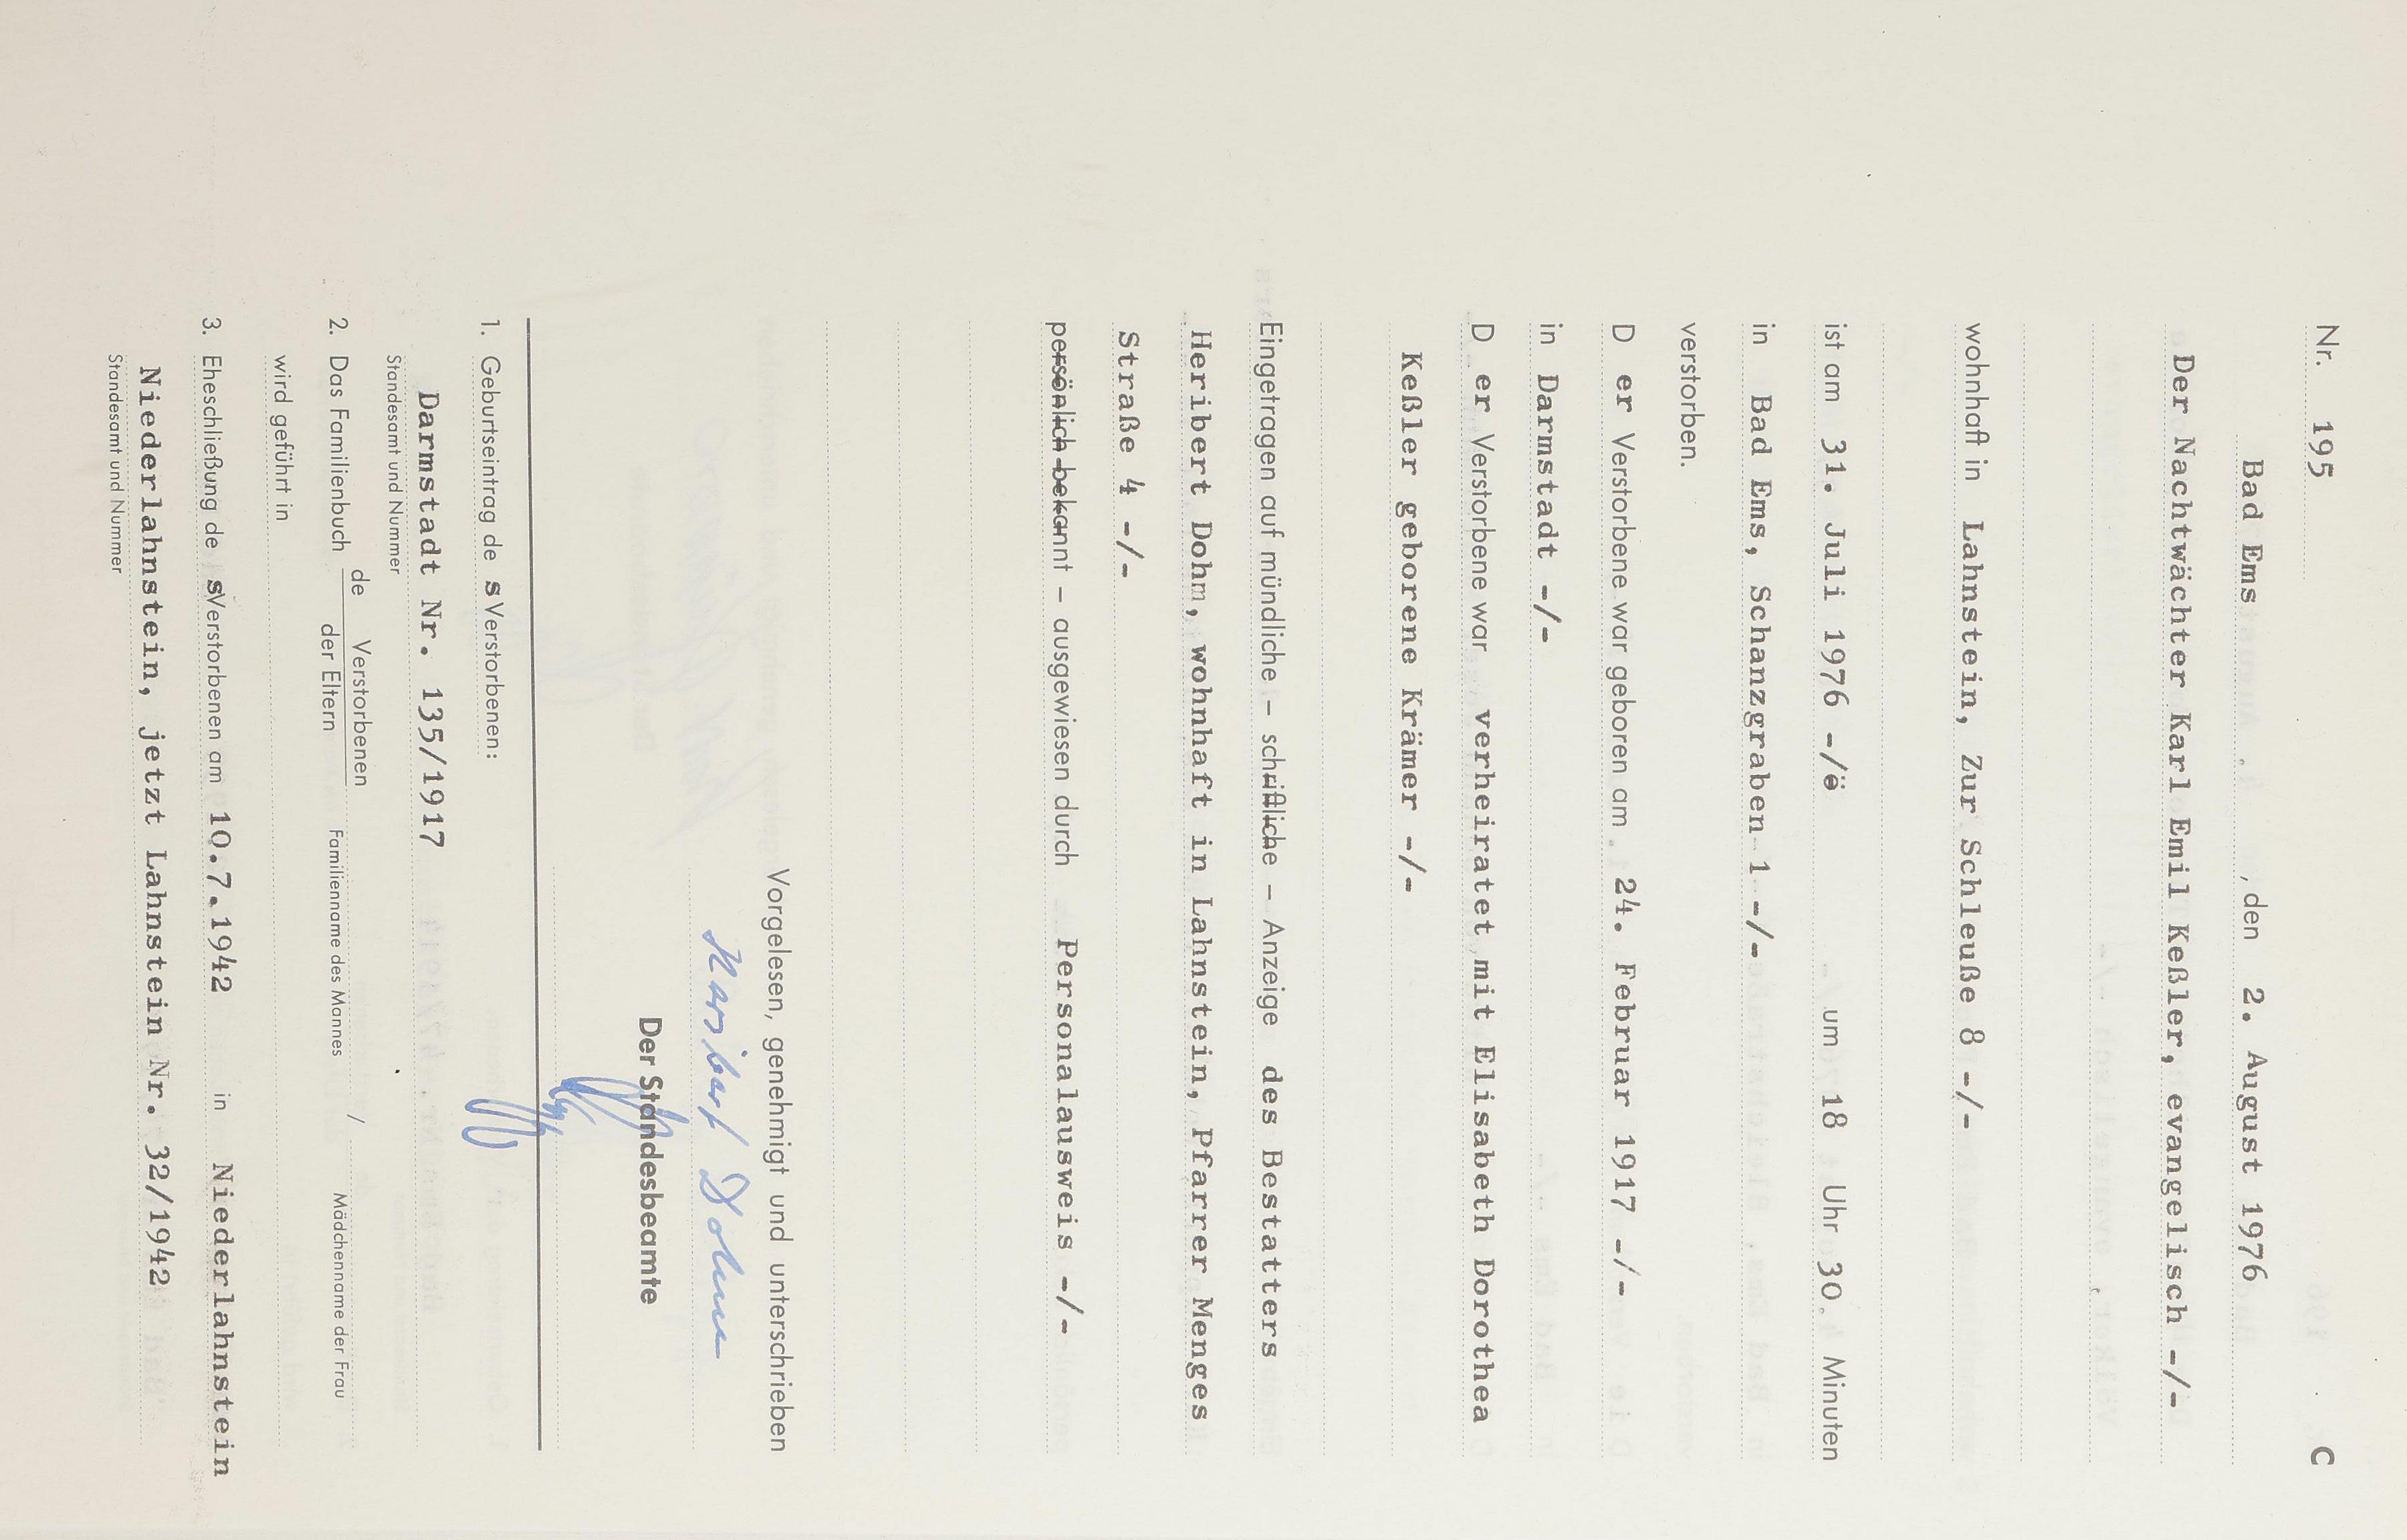 Nr. 195 C
Bad Ems , den 2. August 1976
Der Nachtwächter Karl Emil Keßler, evangelisch -/-
wohnhaft in Lahnstein, Zur Schleuße 8 -/-
ist am 31. Juli 1976 -/- um 18 Uhr 30 Minuten
in Bad Ems, Schanzgraben 1 -/-
verstorben.
D er Verstorbene war geboren am 24. Februar 1917 -/-
in Darmstadt -/-
D er Verstorbene war verheiratet mit Elisabeth Dorothea
Keßler geborene Krämer -/-
Eingetragen auf mündliche – schriftliche – Anzeige des Bestatters
Heribert Dohm, wohnhaft in Lahnstein, Pfarrer Menges
Straße 4 -/-
persönlich bekannt – ausgewiesen durch Personalausweis -/-
Vorgelesen, genehmigt und unterschrieben
Heribert Dohm
Der Standesbeamte
1. Geburtseintrag de s Verstorbenen:
Darmstadt Nr. 135/1917
Standesamt und Nummer
2. Das Familienbuch de Verstorbenen
der Eltern
Familienname des Mannes / Mädchenname der Frau
wird geführt in
3. Eheschließung de s Verstorbenen am 10.7.1942 in Niederlahnstein
Niederlahnstein, jetzt Lahnstein Nr. 32/1942
Standesamt und Nummer